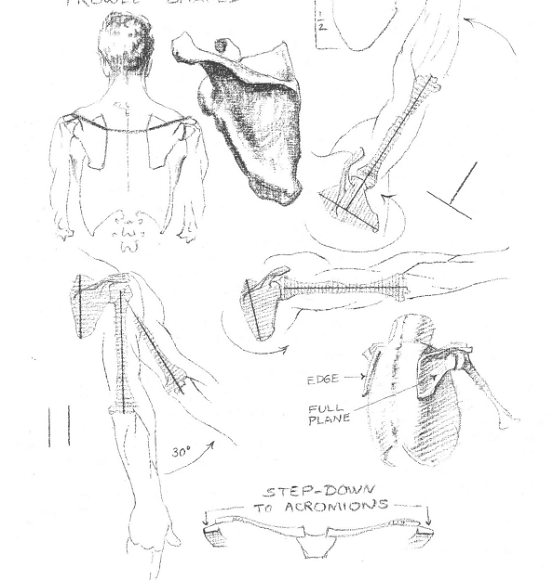 TROWEL SHAPED
1
2
EDGE
FULL
PLANE
30°
STEP-DOWN
TO ACROMIONS